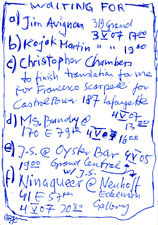 WAITING FOR
a) Jim Avignon 319 Grand
3 V 07 17 00
b) Kojak Martin " " 19 00
c) Christopher Chambers
to finish translation to me
for Francesco Scarpale for
Castnetown 187 Lafayette
4 V 07
d) Ms. Bundy @ 13 20
170 E 79th 4 V 07 16 00
e) J.S. @ Oyster Bar 4 V 05
19 00 Grand Central
w/ J.S.
f) Ninagueer @ Neuhoff
41 E 57th Edelman
4 V 07 20 30 Gallery